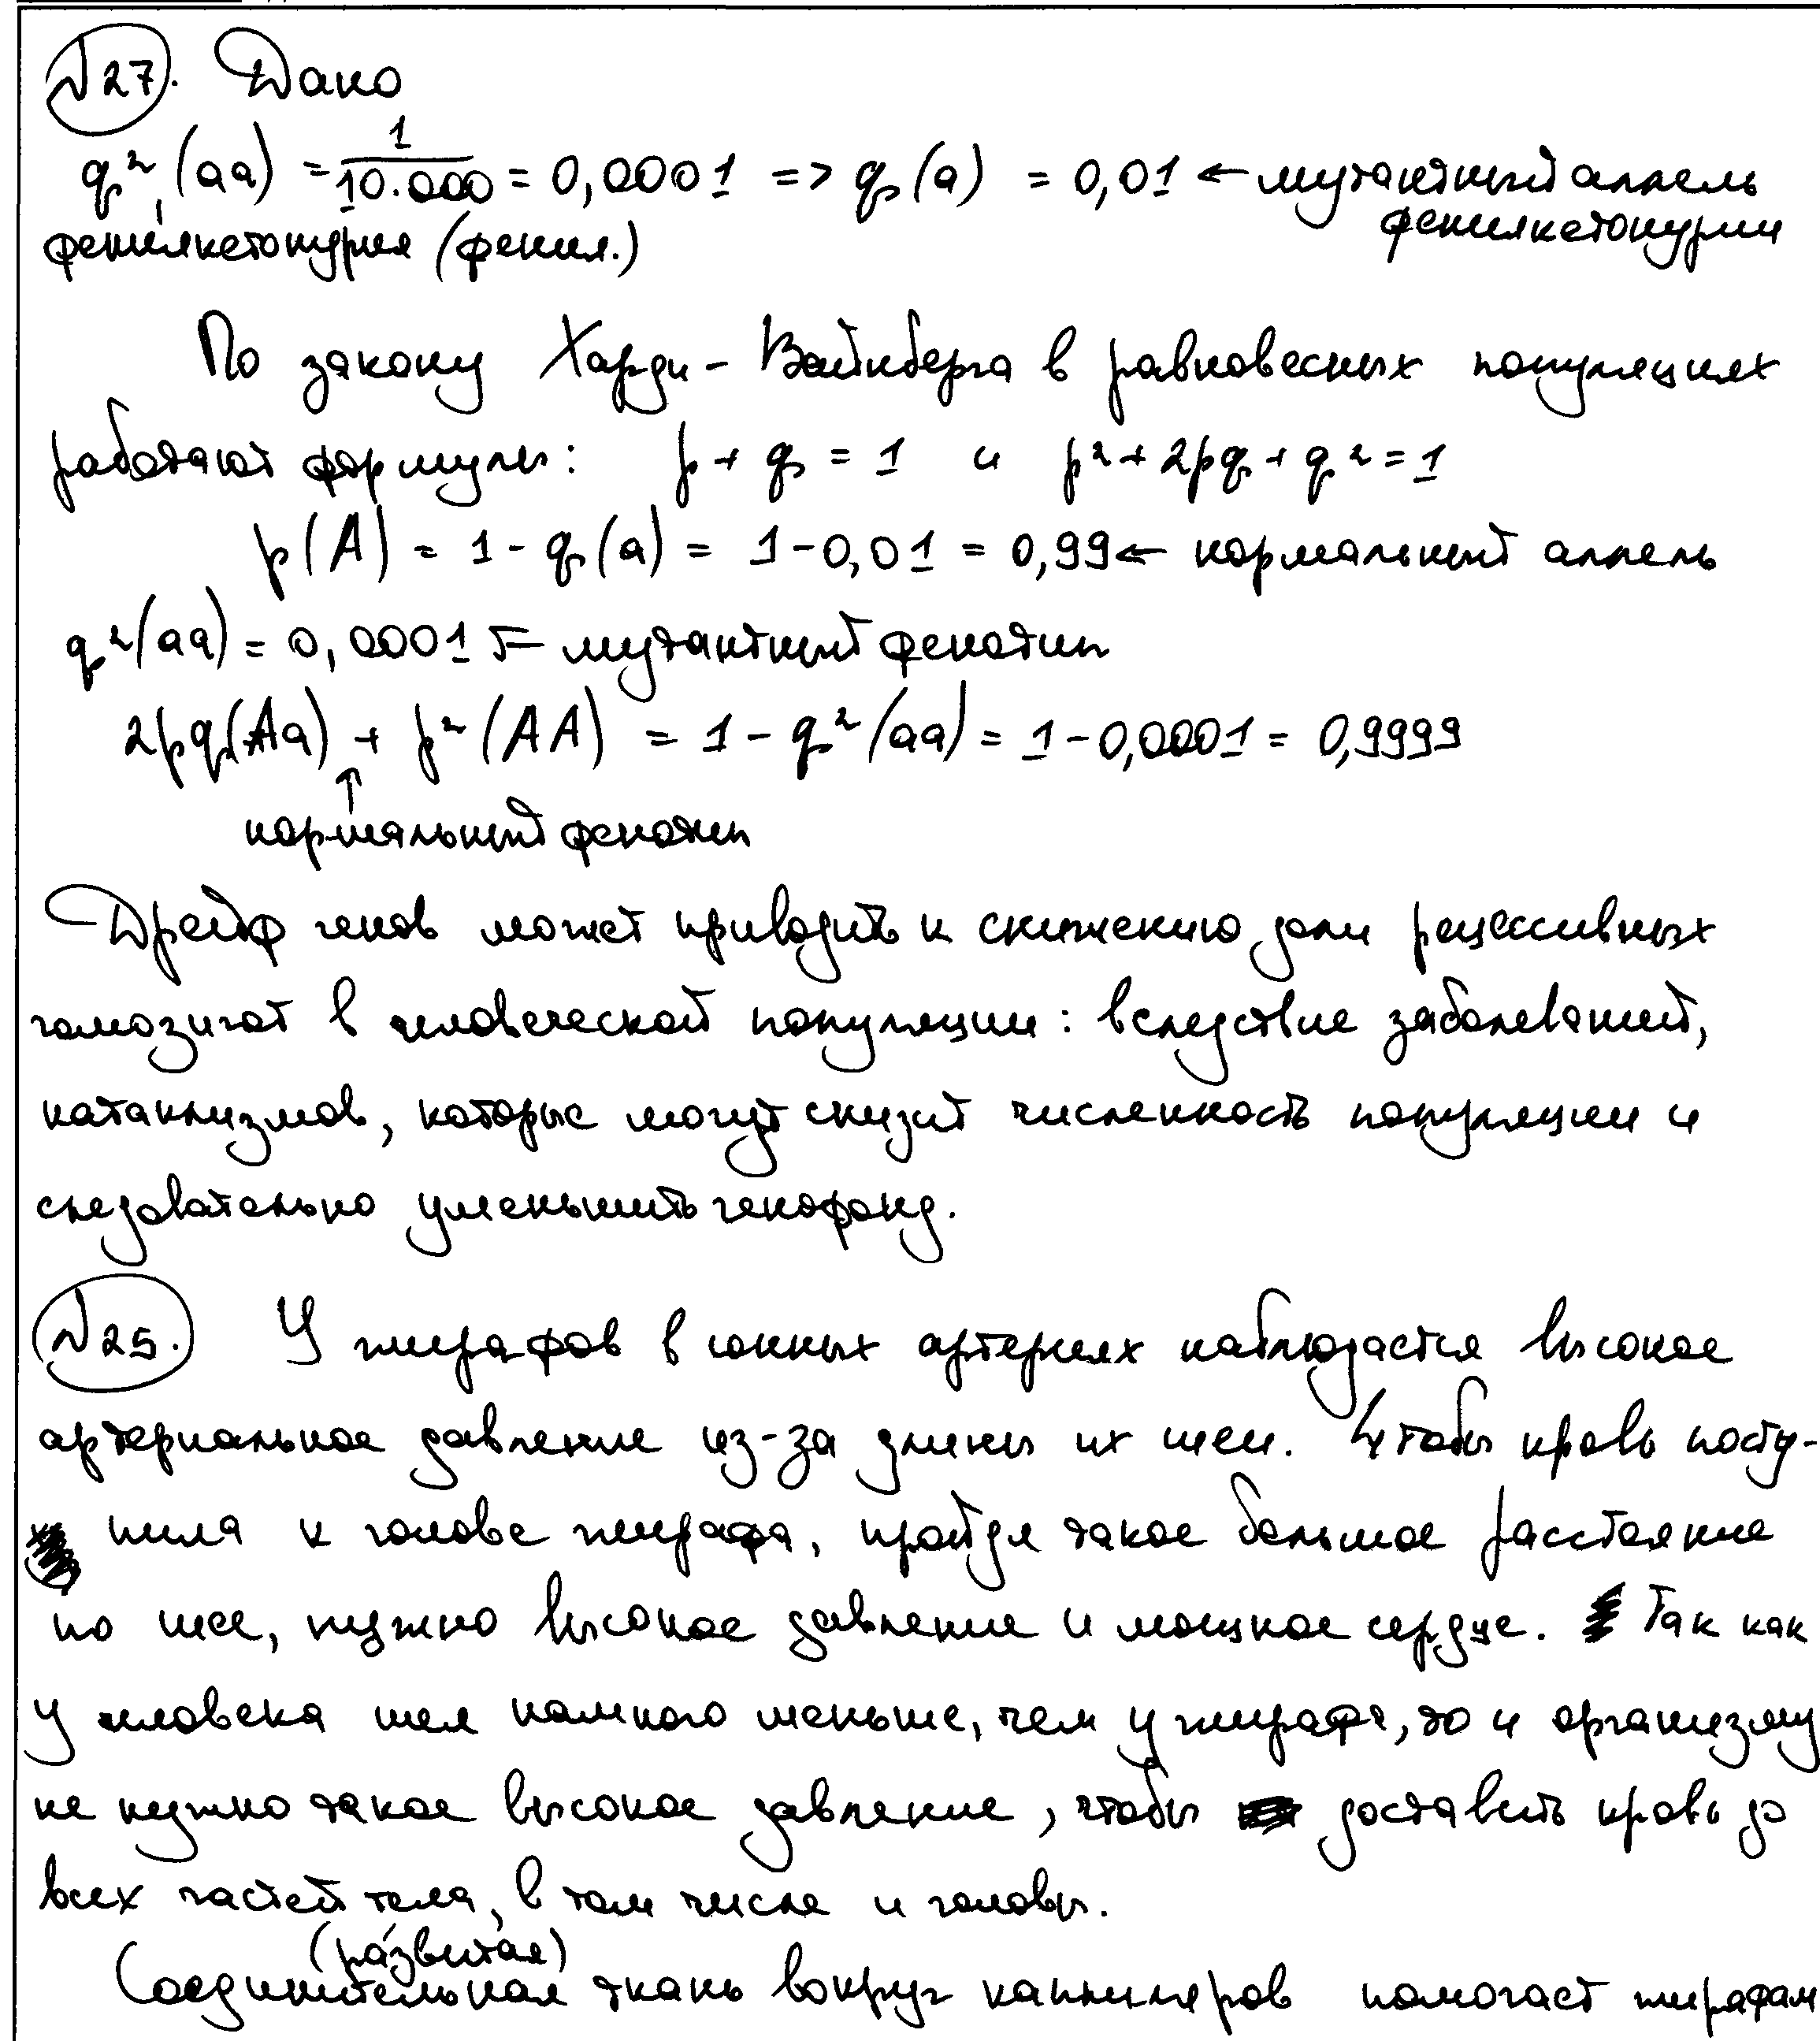 №27. Дано
q² (aa) = 1/10.000 = 0,0001 => q (a) = 0,01 ← мутантный аллель
фенилкетонурия (фенил.) фенилкетонурии
По закону Харди - Вайнберга в равновесных популяциях
работают формулы: p + q = 1 и p² + 2pq + q² = 1
p(A) = 1 - q (a) = 1 - 0,01 = 0,99 ← нормальный аллель
q² (aa) = 0,0001 ← мутантный фенотип
2pq(Aa) + p² (AA) = 1 - q² (aa) = 1 - 0,0001 = 0,9999
↑
нормальный фенотип
Дрейф генов может приводить к снижению доли рецессивных
гомозигот в человеческой популяции: вследствие заболеваний,
катаклизмов, которые могут снизит численность популяции и
следовательно уменьшить генофонд.
№25. У жирафов в сонных артериях наблюдается высокое
артериальное давление из-за длины их шеи. Чтобы кровь посту-
пила к голове жирафа, пройдя такое большое расстояние
по шее, нужно высокое давление и мощное сердце. Так как
у человека шея намного меньше, чем у жирафа, то и организму
не нужно такое высокое давление, чтобы доставить кровь до
всех частей тела, в том числе и головы.
(развитая)
Соединительная ткань вокруг капилляров помогает жирафам